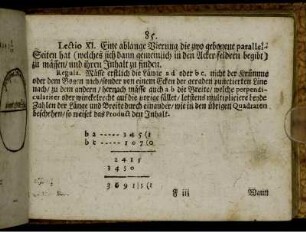 85.
Lectio XI. Eine ablange Vierung die zwo gebogene parallel-
Seiten hat (welches sich dann gemeinlich in den Ackerfeldern begibt)
zu messen/ und ihren Inhalt zu finden.
Regula. Messe erstlich die Linie a d oder b c. nicht der Krümme
oder dem Bogen nach/ sonder von einem Ecken der geraden punctierten Lini
nach/ zu dem andern/ hernach messe auch a b die Breite/ welche perpendi-
culariter oder winckelrecht auf die vorige fället/ letstens multipliciere beide
Zahlen der Länge und Breite durch einander/ wie in den übrigen Quadraten
beschehen/ so weiset das Product den Inhalt.
b a ---- 3 4 5 (1
b c ---- 1 0 7 (0
2 4 1 5
3 4 5 0
3 6 9 1 5 (1
F iii
Wann